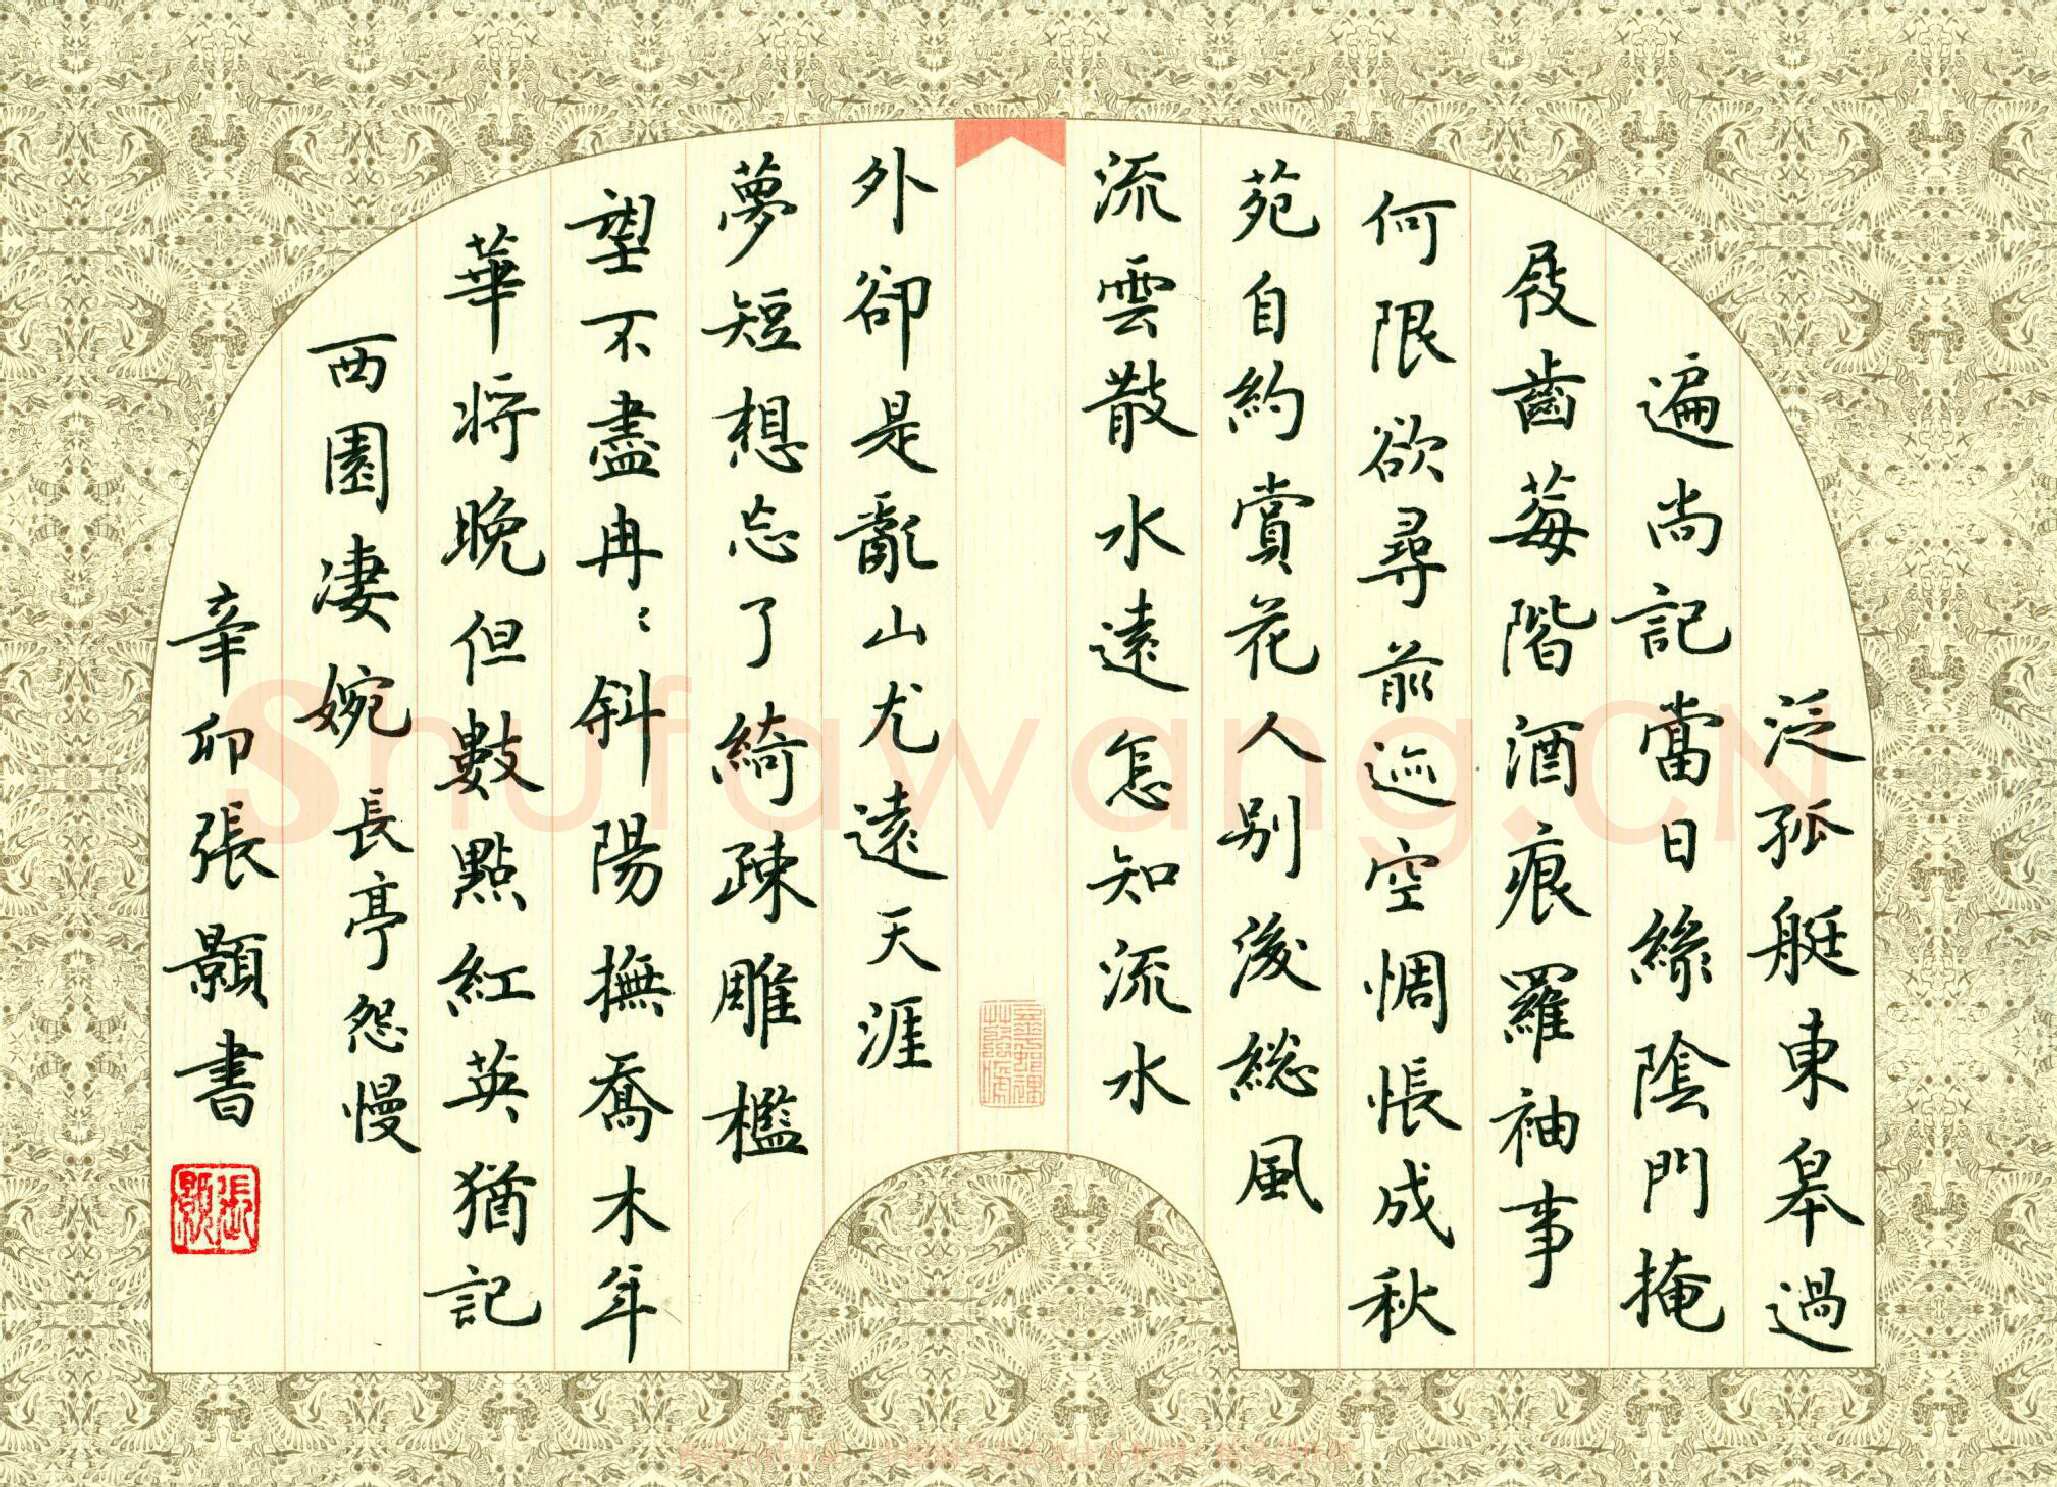 泛孤艇東皋過
遍尚記當日綠陰門掩
屐齒莓階酒痕羅袖事
何限欲尋前迹空惆悵成秋
苑自約賞花人別後総風
流雲散水遠怎知流水
外卻是亂山尤遠天涯
夢短想忘了綺疎雕檻
望不盡冉〻斜陽撫喬木年
華將晚但數點紅英猶記
西園凄婉長亭怨慢
辛卯張顥書
張顥
Shufawang.CN